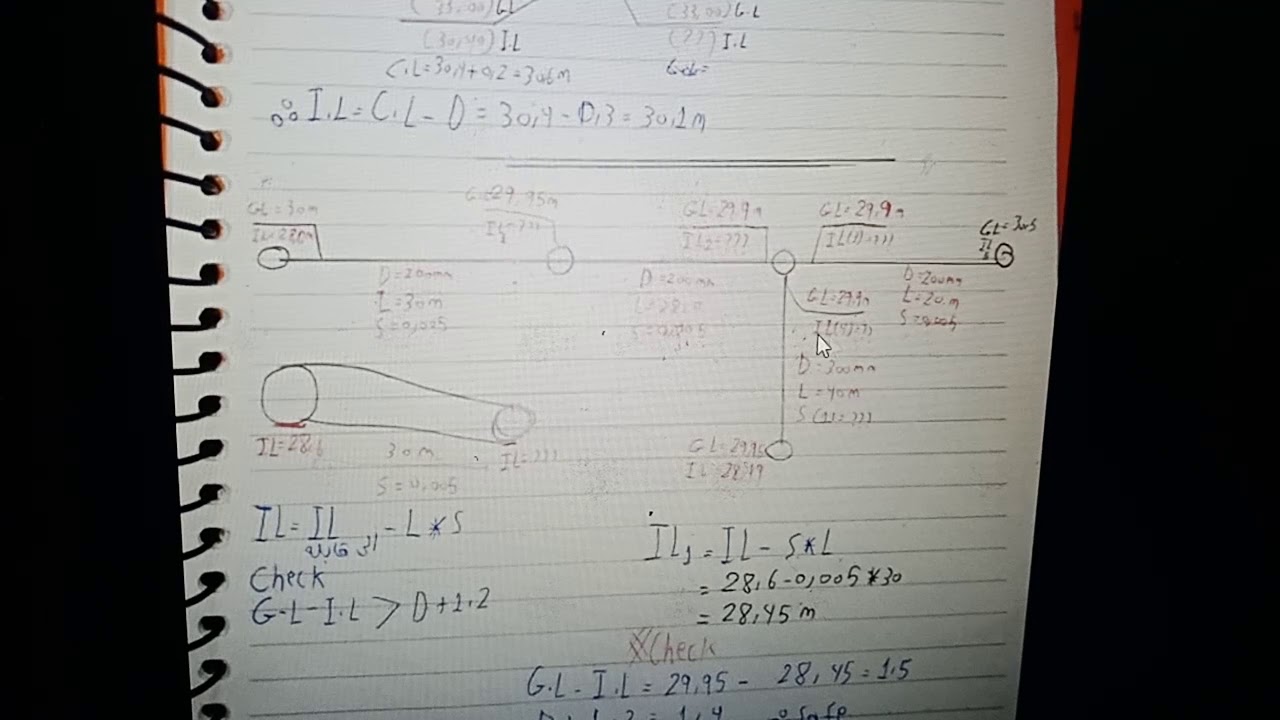 (33,00)G.L
(30,40) I.L
(??) I.L
C.L=30,4+0,2=30,6m
∴ I.L = C.L - D = 30,4 - 0,3 = 30,1m
GL=30m
GL=29,95m
IL=???
GL=29,9m
IL2=???
GL=29,9m
IL(3)=???
D=200mm
L=30m
S=0,005
D=200mm
S=0,005
D=200mm
L=20m
S=0,005
GL=29,9m
IL(4)=??
D=300mm
L=40m
S(1)=???
GL=29,95
IL=28,49
IL=28,6
30m
IL=???
S=0,005
IL = IL - L * S
Check
G.L - I.L > D + 1.2
IL1 = IL - S*L
= 28,6 - 0,005 * 30
= 28,45 m
Check
G.L - I.L = 29,95 - 28,45 = 1.5
D+1.2 = 1,4 ∴ Safe